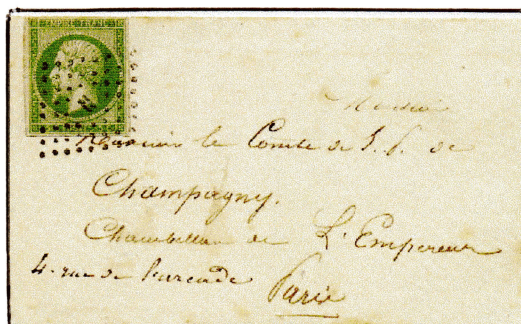 EMPIRE FRANC
Monsieur le Comte de J. P. de
Champagny.
Chambellan de L'Empereur
4. rue de
Paris